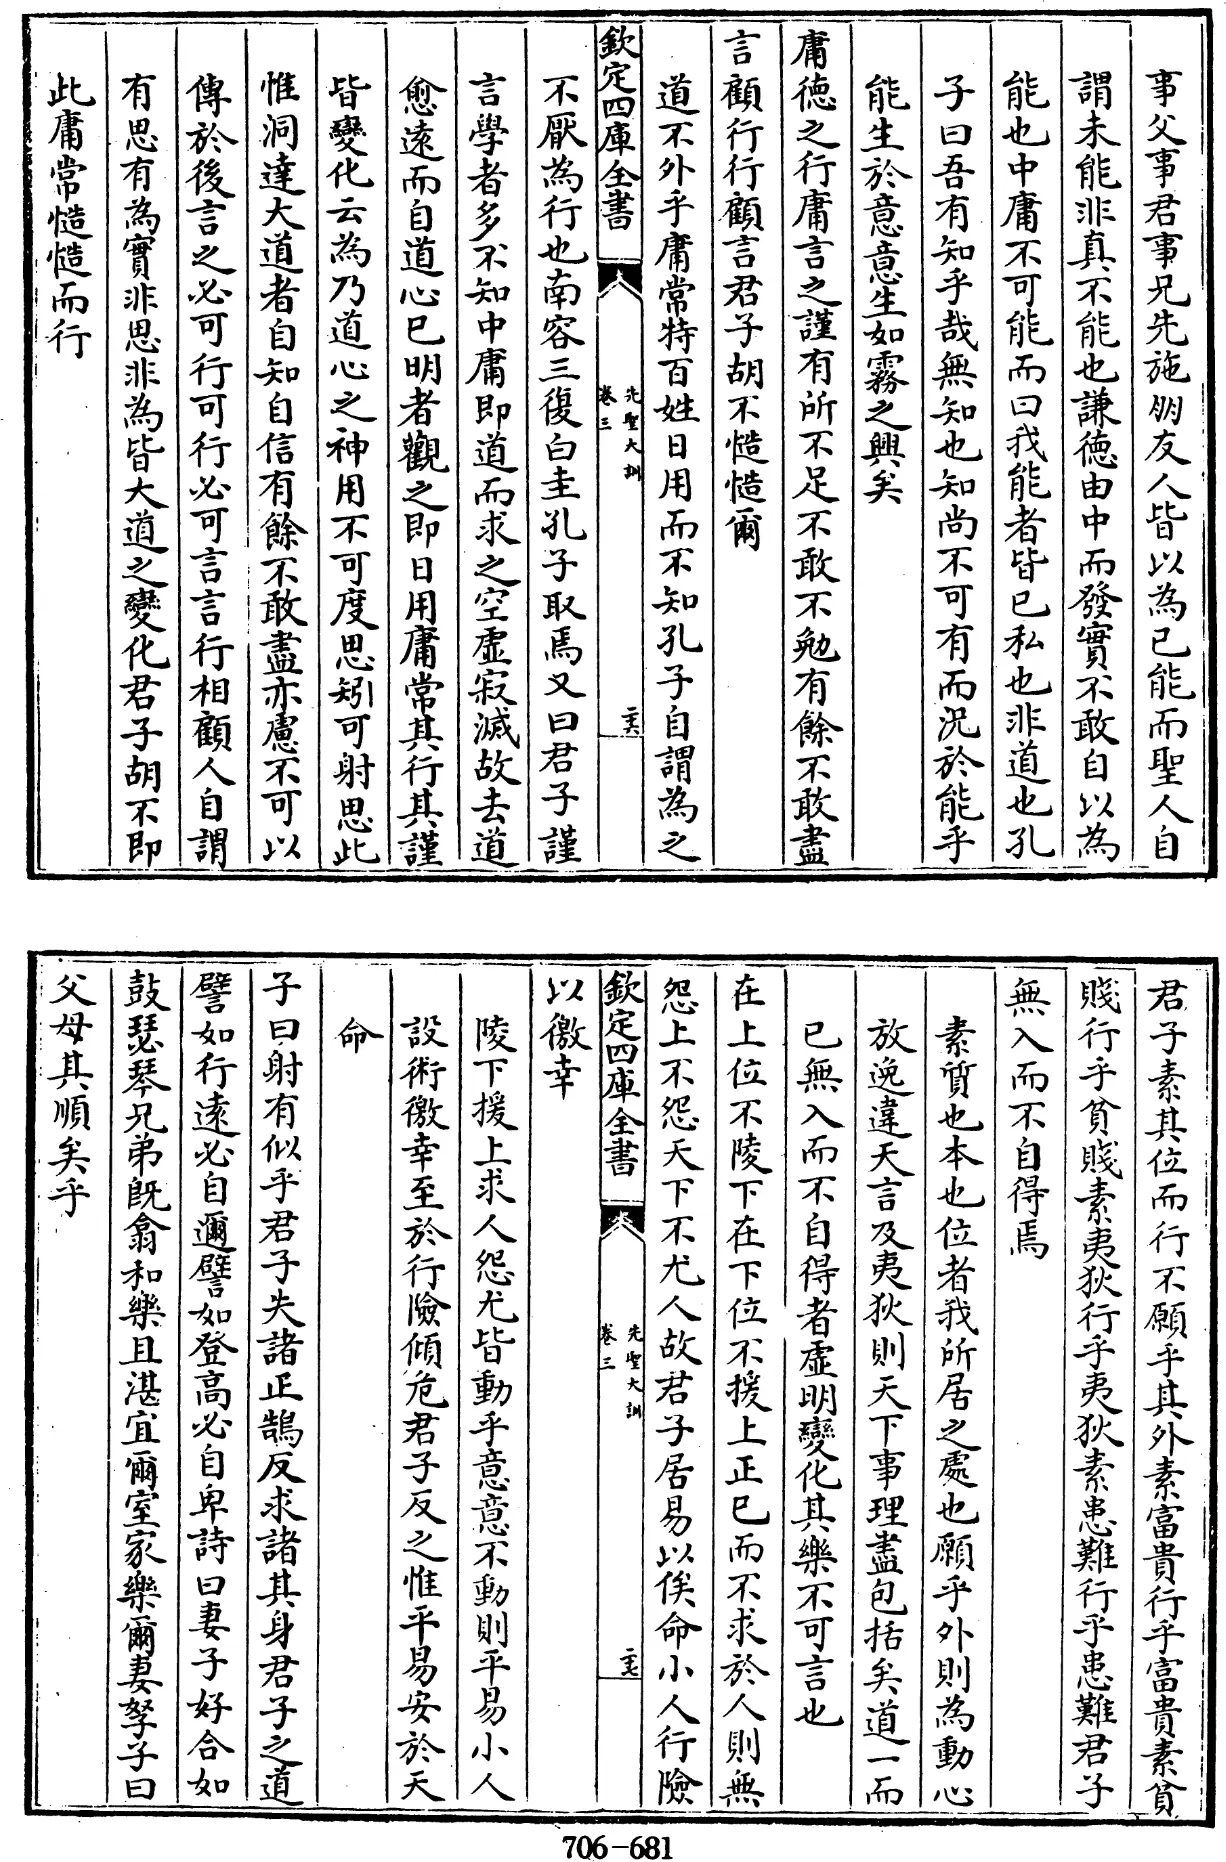 事父事君事兄先施朋友人皆以為已能而聖人自
謂未能非真不能也謙德由中而發實不敢自以為
能也中庸不可能而曰我能者皆已私也非道也孔
子曰吾有知乎哉無知也知尚不可有而況於能乎
能生於意意生如霧之興矣
庸德之行庸言之謹有所不足不敢不勉有餘不敢盡
言顧行行顧言君子胡不慥慥爾
道不外乎庸常特百姓日用而不知孔子自謂為之
欽定四庫全書
先聖大訓
卷三
二十六
不厭為行也南容三復白圭孔子取焉又曰君子謹
言學者多不知中庸即道而求之空虛寂滅故去道
愈遠而自道心已明者觀之即日用庸常其行其謹
皆變化云為乃道心之神用不可度思矧可射思此
惟洞達大道者自知自信有餘不敢盡亦慮不可以
傳於後言之必可行可行必可言言行相顧人自謂
有思有為實非思非為皆大道之變化君子胡不即
此庸常慥慥而行
君子素其位而行不願乎其外素富貴行乎富貴素貧
賤行乎貧賤素夷狄行乎夷狄素患難行乎患難君子
無入而不自得焉
素質也本也位者我所居之處也願乎外則為動心
放逸違天言及夷狄則天下事理盡包括矣道一而
已無入而不自得者虛明變化其樂不可言也
在上位不陵下在下位不援上正已而不求於人則無
怨上不怨天下不尤人故君子居易以俟命小人行險
欽定四庫全書
先聖大訓
卷三
二十七
以徼幸
陵下援上求人怨尤皆動乎意意不動則平易小人
設術徼幸至於行險傾危君子反之惟平易安於天
命
子曰射有似乎君子失諸正鵠反求諸其身君子之道
譬如行遠必自邇譬如登高必自卑詩曰妻子好合如
鼓瑟琴兄弟旣翕和樂且湛宜爾室家樂爾妻孥子曰
父母其順矣乎
706-681